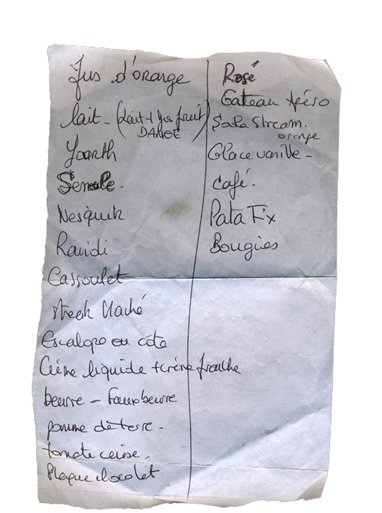 Jus d'orange
lait - (lait + jus fruit)
DANOE
Yaourth
Semoule.
Nesquik
Ravidi
Cassoulet
steek haché
Escalope ou cote
Crème liquide + crème fraiche
beurre - faux beurre
pomme de terre -
tomate cerise.
Plaque chocolat
Rosé
Gateau Apéro
Soda Stream.
orange
Glace vanille -
Café.
Pata Fix
Bougies